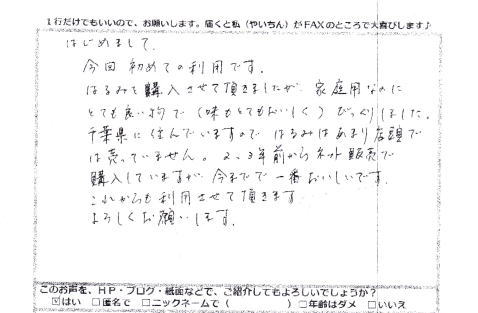 1行だけでもいいので、お願いします。届くと私（やいちん）がFAXのところで大喜びします♪
はじめまして。
今回 初めての利用です。
はるみを購入させて頂きましたが、家庭用なのに
とても良い物で（味もとてもおいしく）びっくりしました。
千葉県に住んでいますので はるみはあまり店頭で
は売っていません。2、3年前からネット販売で
購入していますが 今までで一番おいしいです。
これからも利用させて頂きます
よろしくお願いします。
このお声を、HP・ブログ・紙面などで、ご紹介してもよろしいでしょうか？
☑はい □匿名で □ニックネームで（ ）□年齢はダメ □いいえ